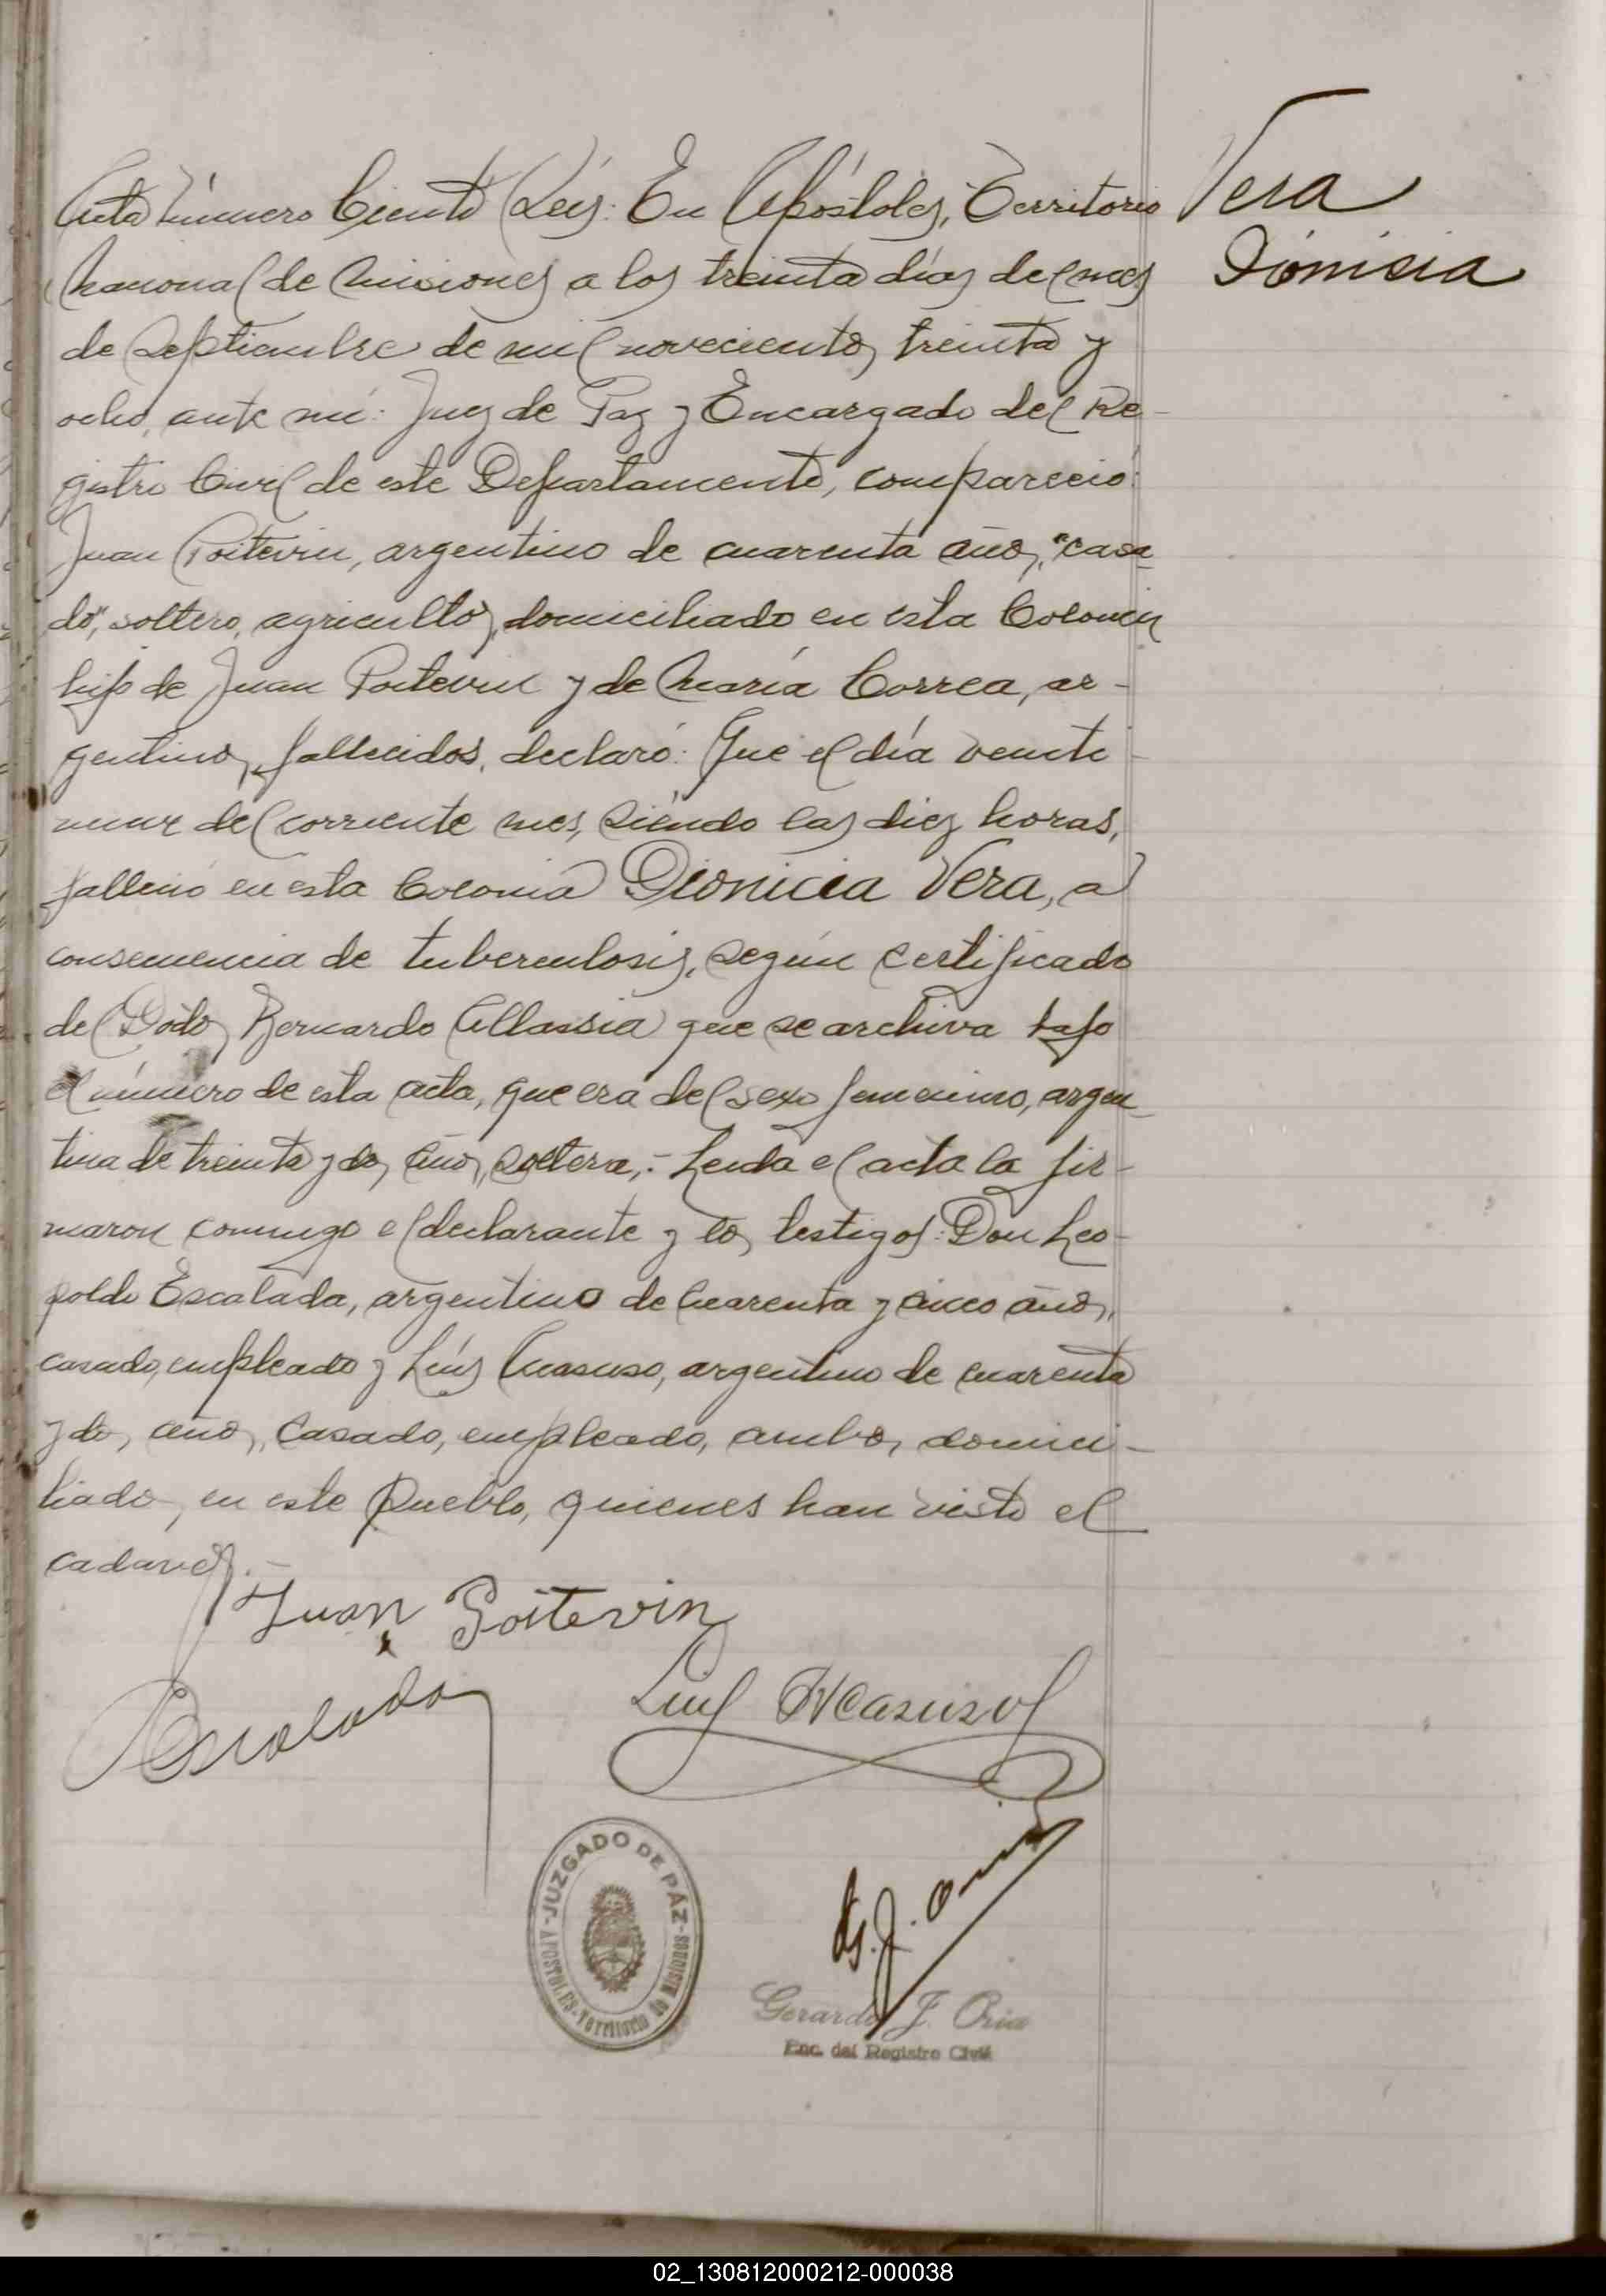 Vera
Dionisia
Acta número Ciento Seis: En Apóstoles, Territorio
Nacional de Misiones a los treinta días del mes
de Septiembre de mil novecientos treinta y
ocho, ante mí: Juez de Paz y Encargado del Re-
gistro Civil de este Departamento, compareció:
Juan Poitevin, argentino de cuarenta años, "casa
do", soltero, agricultor, domiciliado en esta Colonia
hijo de Juan Poitevin y de María Correa, ar-
gentinos, fallecidos, declaró: Que el día veinte
nueve del corriente mes, siendo las diez horas,
falleció en esta Colonia Dionicia Vera, a
consecuencia de tuberculosis, según certificado
del Doctor Bernardo Allassia que se archiva bajo
el número de esta acta, que era del sexo femenino, argen
tina de treinta y dos años, soltera,.- Leída el acta la fir-
maron conmigo el declarante y los testigos: Don Leo-
poldo Escalada, argentino de cuarenta y cinco años,
casado, empleado y Luís argentino de cuarenta
y dos años, casado, empleado, ambos domici-
liados en este Pueblo, quienes han visto el
cadaver.-
Juan Poitevin
Escalada
Luis
JUZGADO DE PÁZ
APOSTOLES-Territorio de Misiones
G. J. Oria
Gerardo J. Oria
Enc. del Registro Civil
02_130812000212-000038